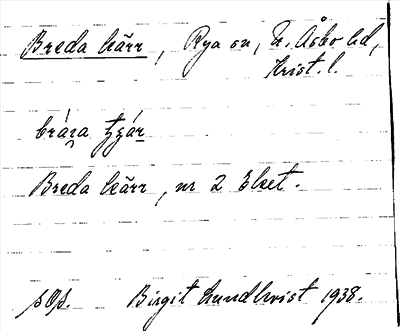 Breda kärr, Rya sn, N. Åsbo hd,
Krist. l.
Breda kärr, nr 2 Eket.
Birgit Lundkvist 1938.